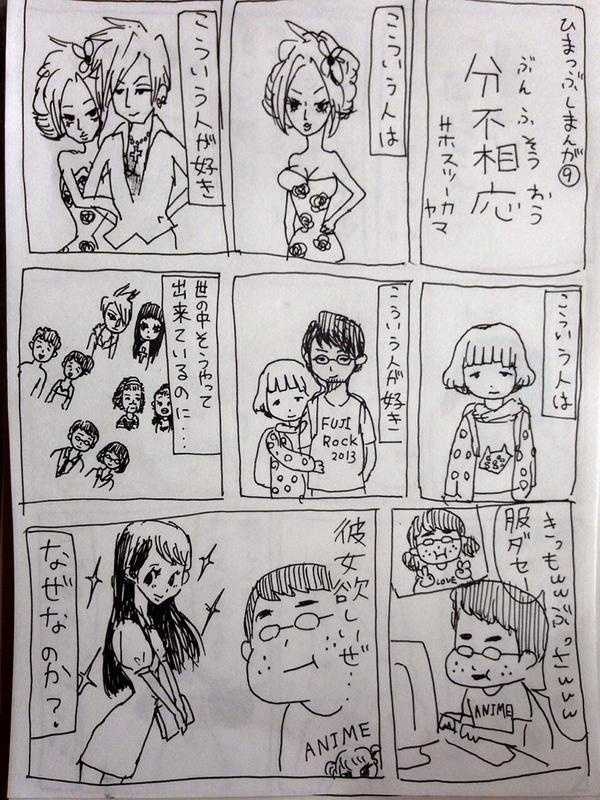 ひまつぶしまんが⑨
ぶんふそうおう
分不相応
サホスツーカヤマ
こういう人は
こういう人が好き
こういう人は
こういう人が好き
FUJI
Rock
2013
世の中そうやって
出来ているのに…
きっもwwぶっさww
服ダセー
LOVE
ANIME
彼女欲しいぜ…
ANIME
なぜなのか?